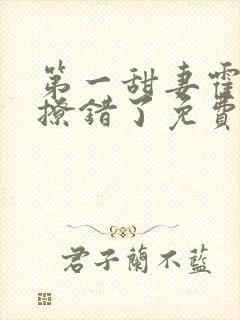 第一甜妻霍
撩错了免費
君子蘭不藍